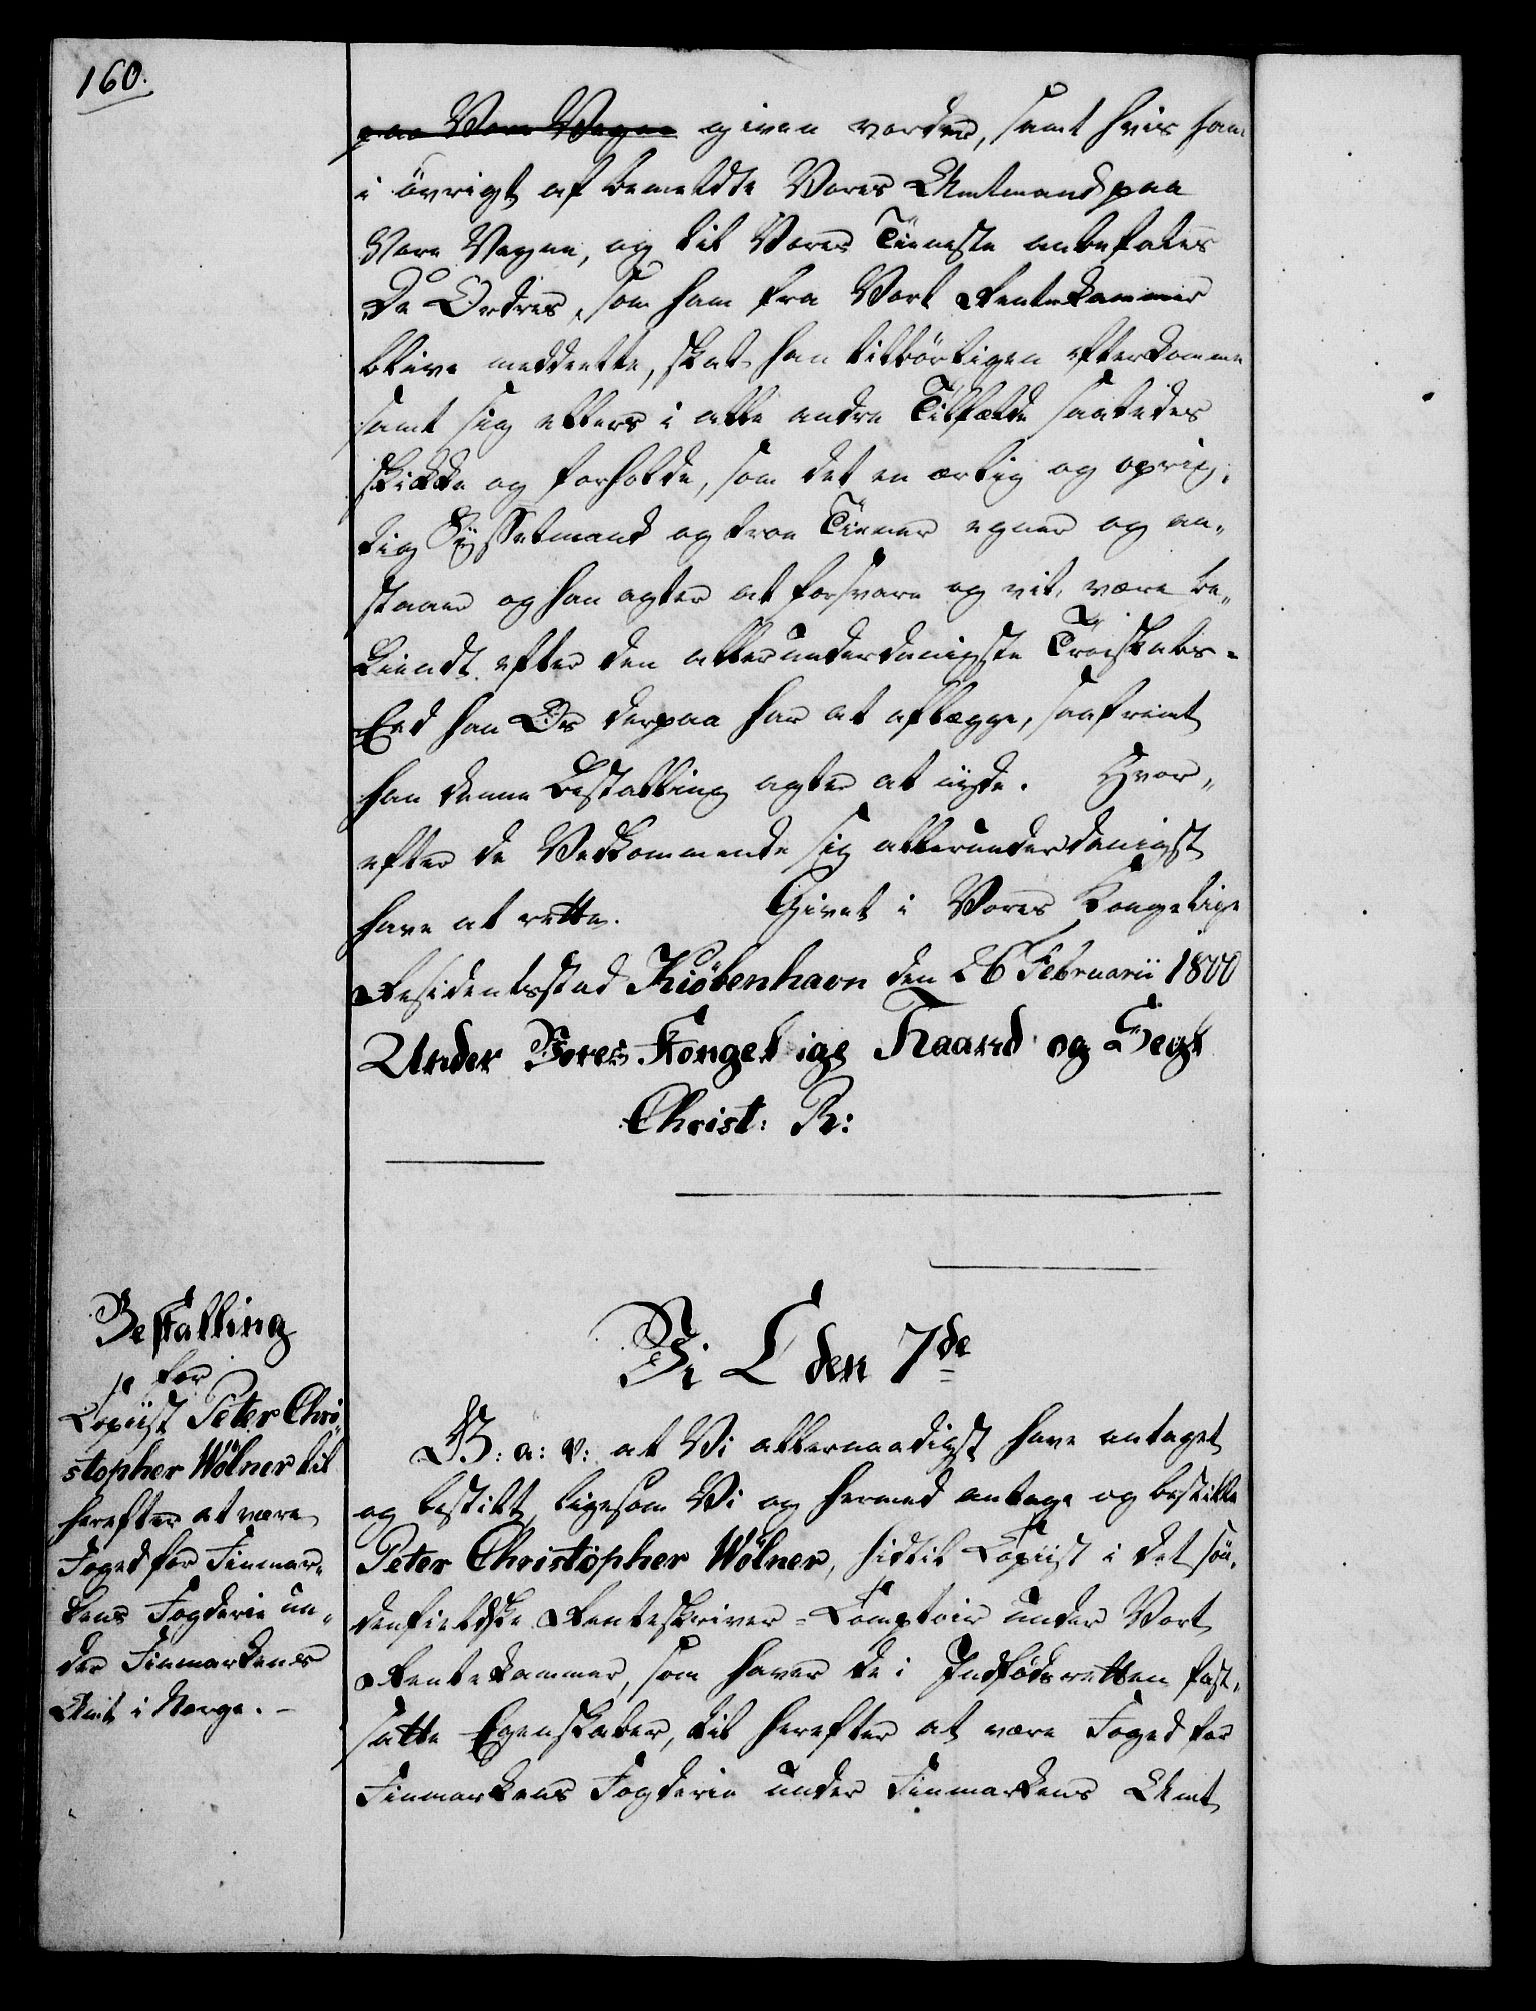 160.
paa Vore Vegne given vorder, samt hvis ham
i övrigt af bemeldte Vores Amtmand paa
Vore Vegne, og til Vores Tieneste anbefales
De Ordres, som ham fra Vort Rentekammer
blive meddeelte, skal han tilbörligen efterkomme
samt sig ellers i alle andre Tilfælde saaledes
skikke og forholde, som det en ærlig og oprig,
tig Sysselmand og troe Tiener egner og an„
staaer og han agter at forsvare og vil være be„
kiendt. efter den allerunderdanigste Troeskabs-
Eed han Os derpaa har at aflægge, saafremt
han denne Bestalling agter at nyde. Hvor„
efter de Vedkommende sig allerunderdanigst
have at rette. Givet i Vores Kongelige
Residentsstad Kiöbenhavn den 26 Februarii 1800
Under Vores Kongelige Haand og Segl
Christ: R:
Bestalling
for
Copiist Peter Chri„
stopher Wölner til
herefter at være
Foged for Finmar„
kens Fogderie un„
der Finmarkens
Amt i Norge. –
Vi C den 7de
G: a: v: at Vi allernaadigst have antaget
og bestilt, ligesom Vi og hermed antage og bestille
Peter Christopher Wölner, hidtil Copiist i det sön„
denfieldske Renteskriver-Comptoir under Vort
Rentekammer, som haver de i Indfödsretten fast„
satte Egenskaber, til herefter at være Foged for
Finmarkens Fogderie under Finmarkens Amt